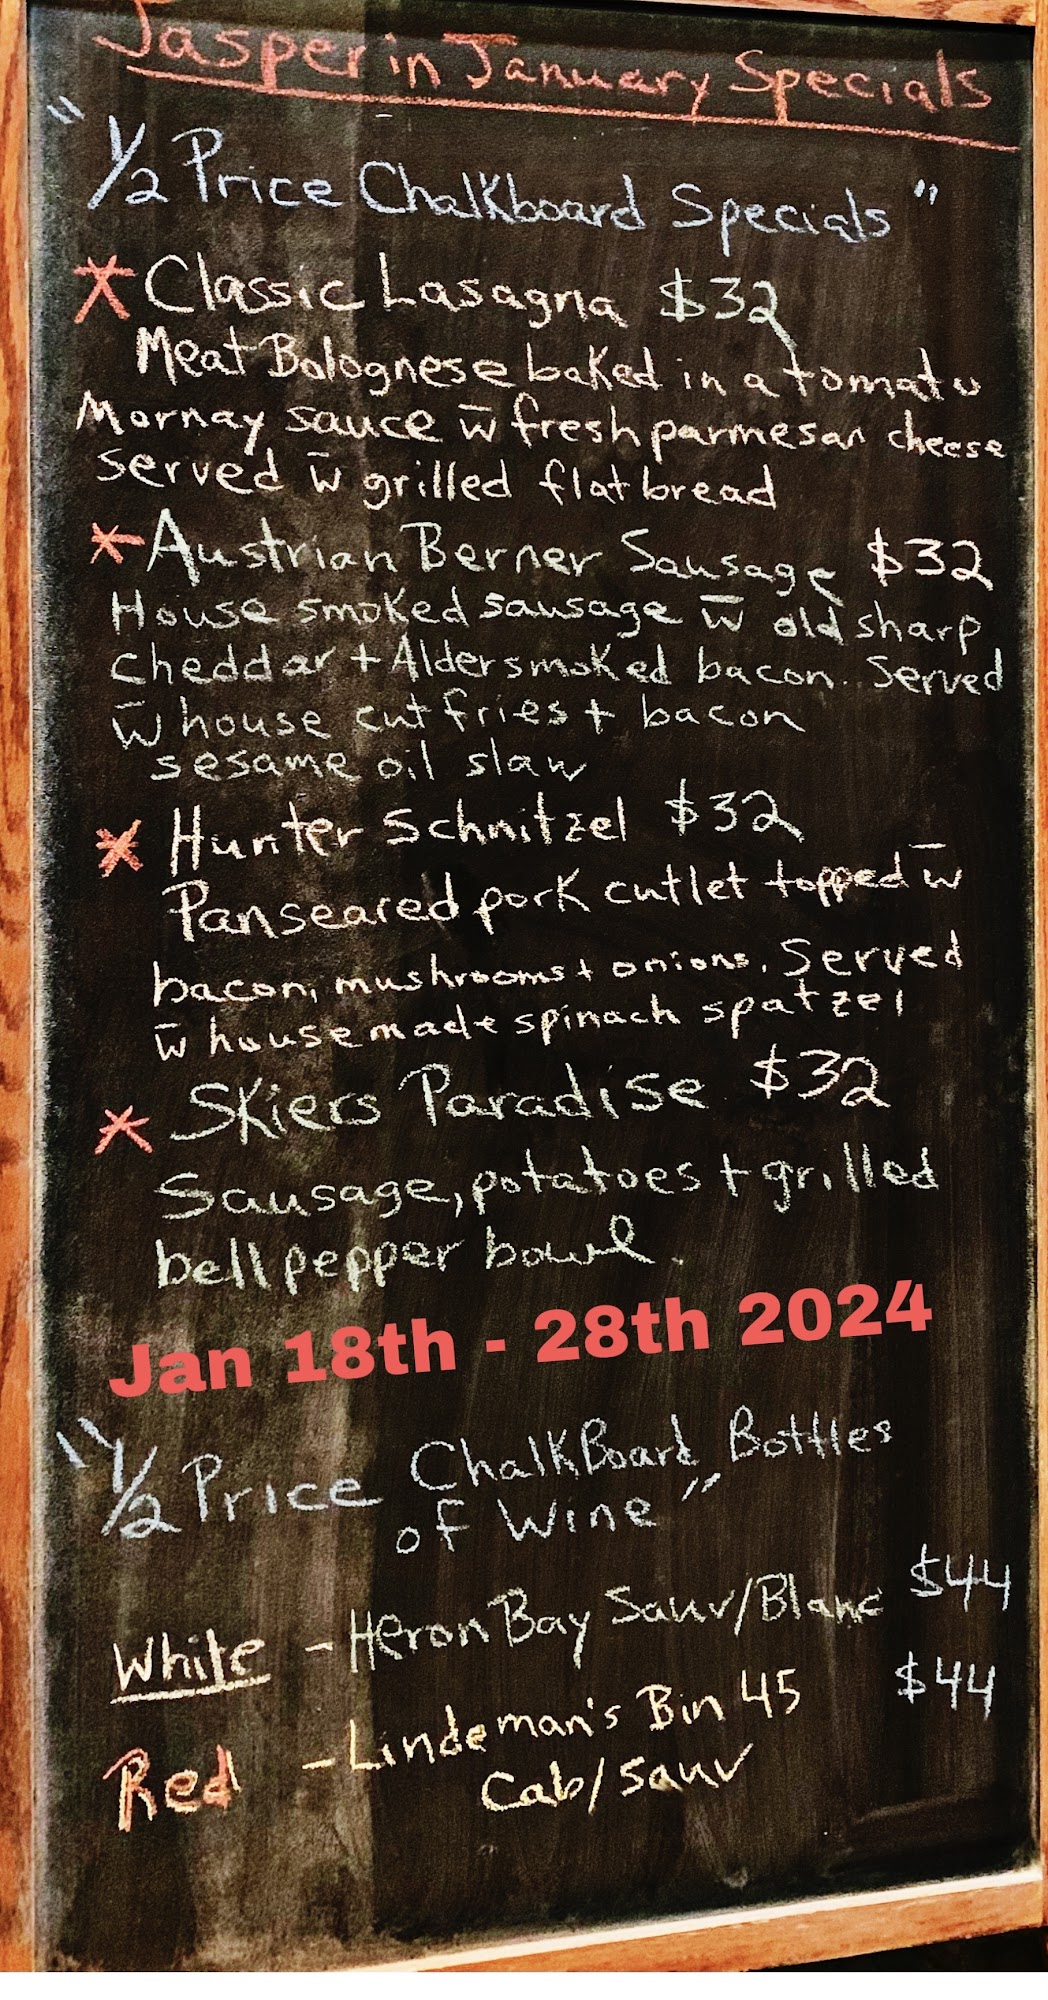 Jasper in January Specials
"1/2 Price Chalkboard Specials"
* Classic Lasagna $32
Meat Bolognese baked in a tomato
Mornay sauce w̄ fresh parmesan cheese
served w̄ grilled flatbread
* Austrian Berner Sausage $32
House smoked sausage w̄ old sharp
cheddar + Alder smoked bacon. Served
w̄ house cut fries + bacon
sesame oil slaw
* Hunter Schnitzel $32
Panseared pork cutlet topped w̄
bacon, mushrooms + onions. Served
w̄ house made spinach spatzel
* Skiers Paradise $32
Sausage, potatoes + grilled
bell pepper bowl.
Jan 18th - 28th 2024
"1/2 Price ChalkBoard Bottles
of Wine"
White - Heron Bay Sauv/Blanc $44
Red - Lindeman's Bin 45 $44
Cab/Sauv